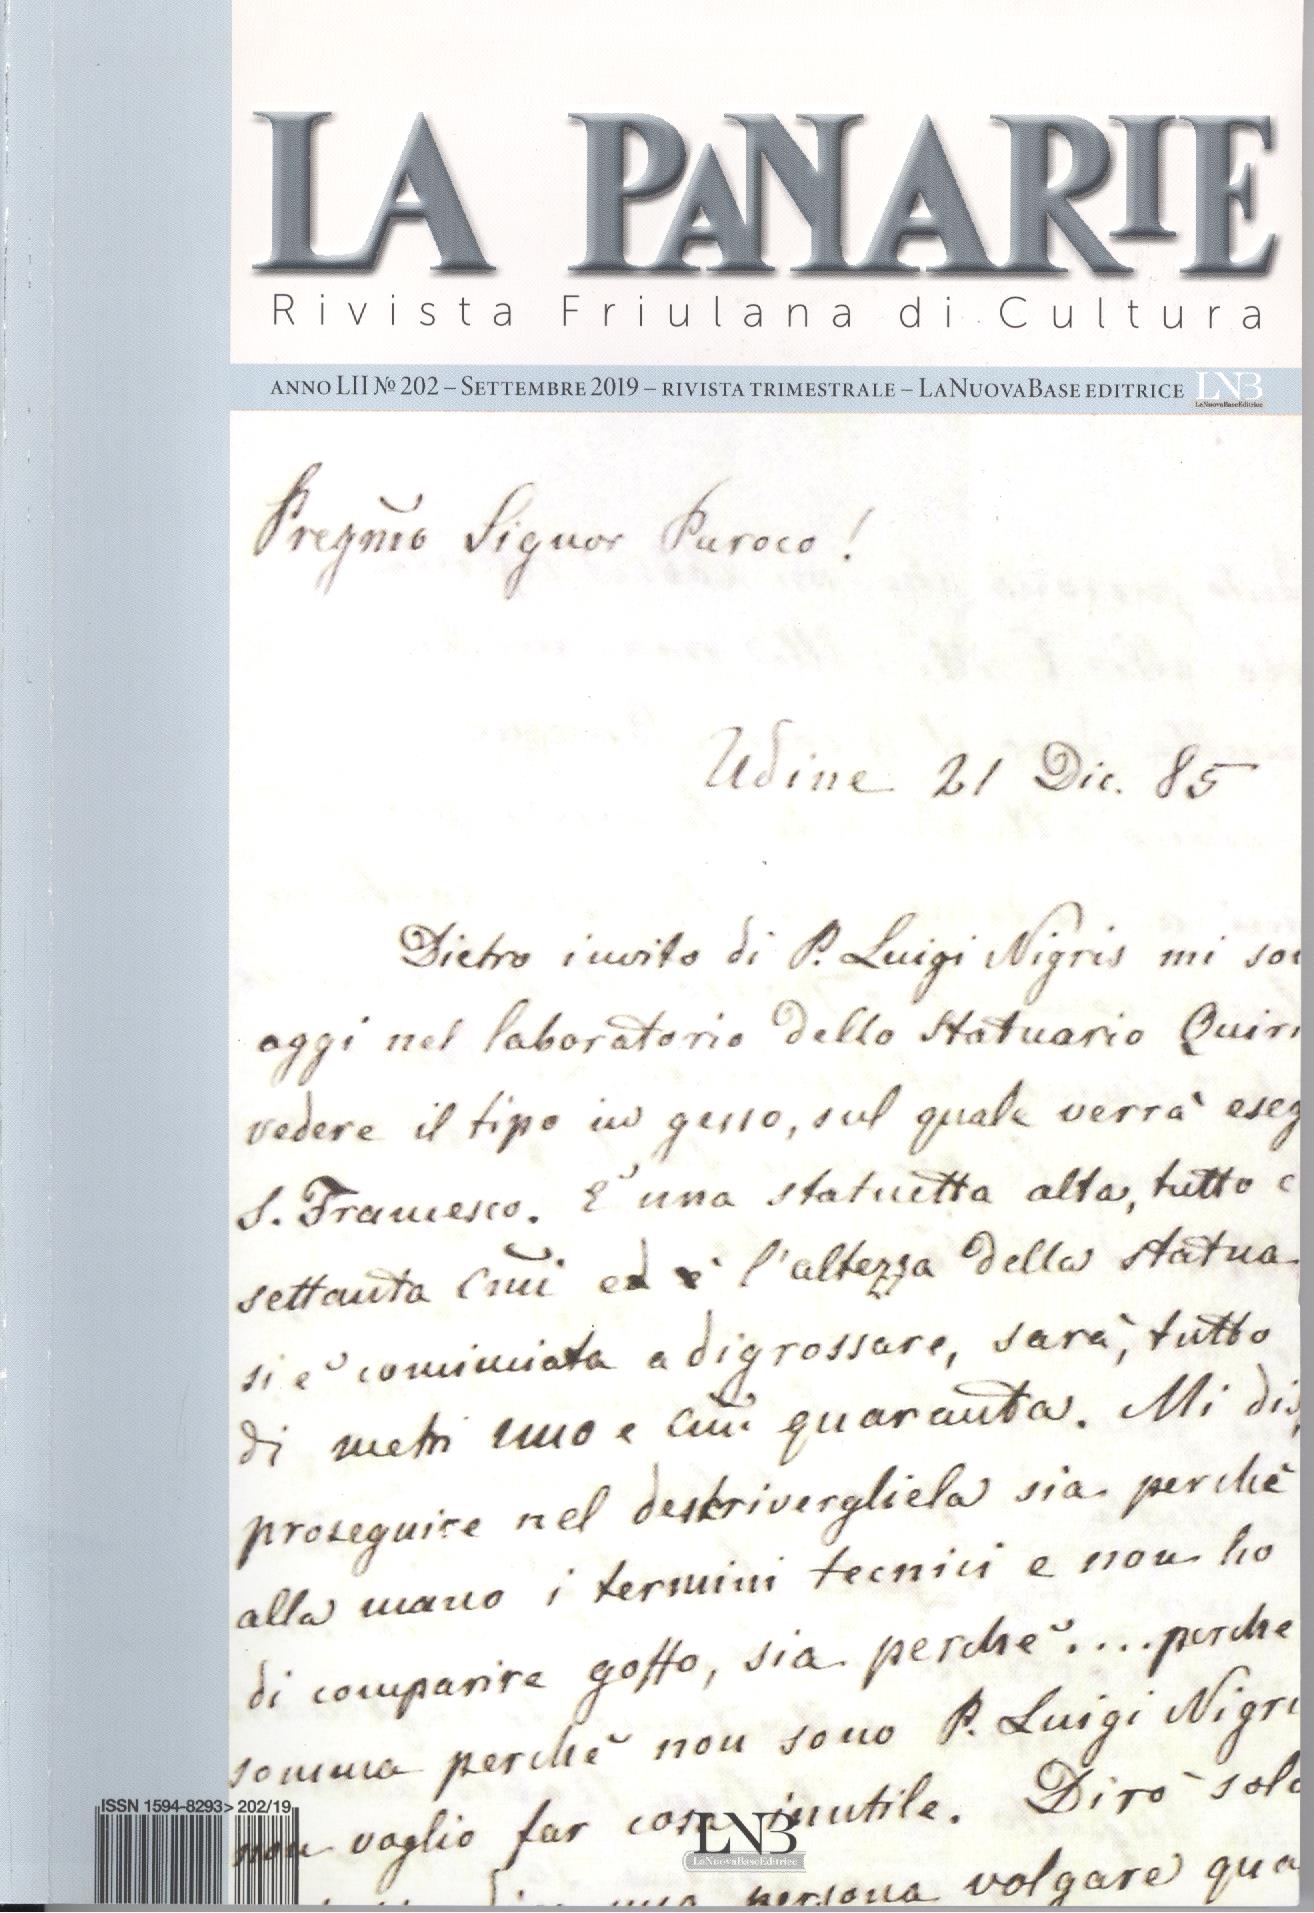 LA PANARIE
Rivista Friulana di Cultura
ANNO LII № 202 – SETTEMBRE 2019 – RIVISTA TRIMESTRALE – LANUOVABASE EDITRICE LNB
LaNuovaBaseEditrice
Pregmo Signor Paroco!
Udine 21 Dic. 85
Dietro invito di P. Luigi Nigris mi son
aggi nel laboratorio dello statuario Quiri
vedere il tipo in gesso, sul quale verrà eseg
S. Francesco. È una statuetta alta, tutto c
settanta Cmi ed è l'altezza della statua
si è cominciata a digrossare, sarà, tutto
di metri uno e Cmi quaranta. Mi dis
proseguire nel deskrivergliela sia perchè
alla mano i termini tecnici e non ho
di comparire goffo, sia perchè .... perche
somma perchè non sono P. Luigi Nigri
non voglio far cosa inutile. Dirò solo
una persona volgare qua
ISSN 1594-8293> 202/19
LNB
LaNuovaBaseEditrice